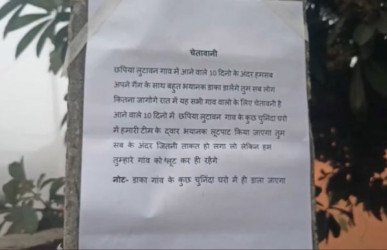 चेतावनी
छपिया लुटावन गाव में आने वाले 10 दिनो के अंदर हमसब
अपने गैंग के साथ बहुत भयानक डाका डालेंगे तुम सब लोग
कितना जागोगे रात में यह सभी गाव वालो के लिए चेतावनी है
आने वाले 10 दिन में छपिया लुटावन गाव के कुछ चुनिंदा घरो
में हमारी टीम के द्वार भयानक लूटपाट किया जाएगा तुम
सब के अंदर जितनी ताकत हो लगा लो लेकिन हम
तुम्हारे गांव को लूट कर ही रहेंगे
नोट- डाका गांव के कुछ चुनिंदा घरो में ही डाला जाएगा